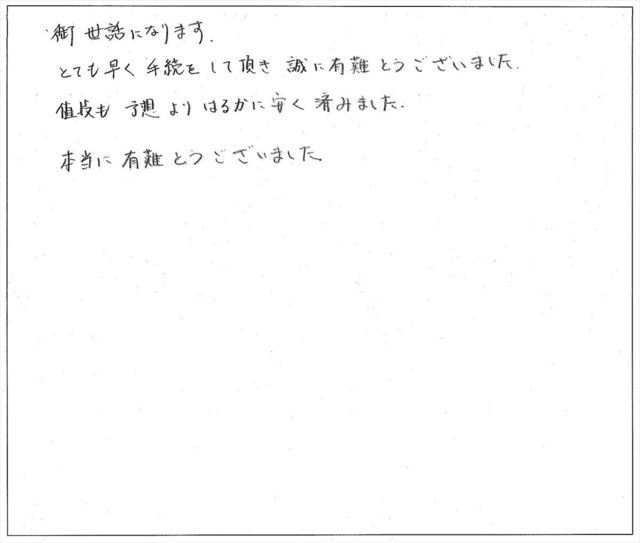 御世話になります.
とても早く手続をして頂き誠に有難とうございました.
値段も予想よりはるかに安く済みました.
本当に有難とうございました.